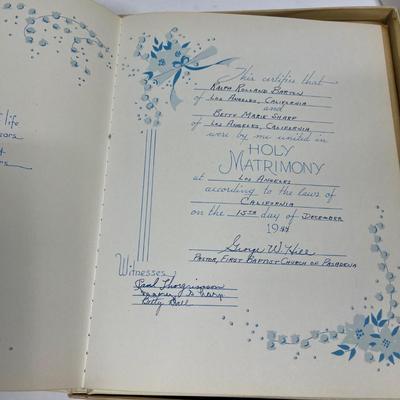 life
This certifies that
Ralph Rolland Barton
of Los Angeles, California
and
Betty Marie Sharp
of Los Angeles, California
were by me united in
HOLY
MATRIMONY
at Los Angeles
according to the laws of
California
on the 15th day of December
1944
George W. Hill
Pastor, First Baptist Church of Pasadena
Witnesses
Betty